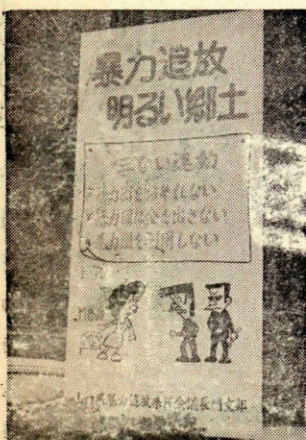 暴力追放
明るい郷土
三ない運動
暴力団を恐れない
暴力団に金を出さない
暴力団を利用しない